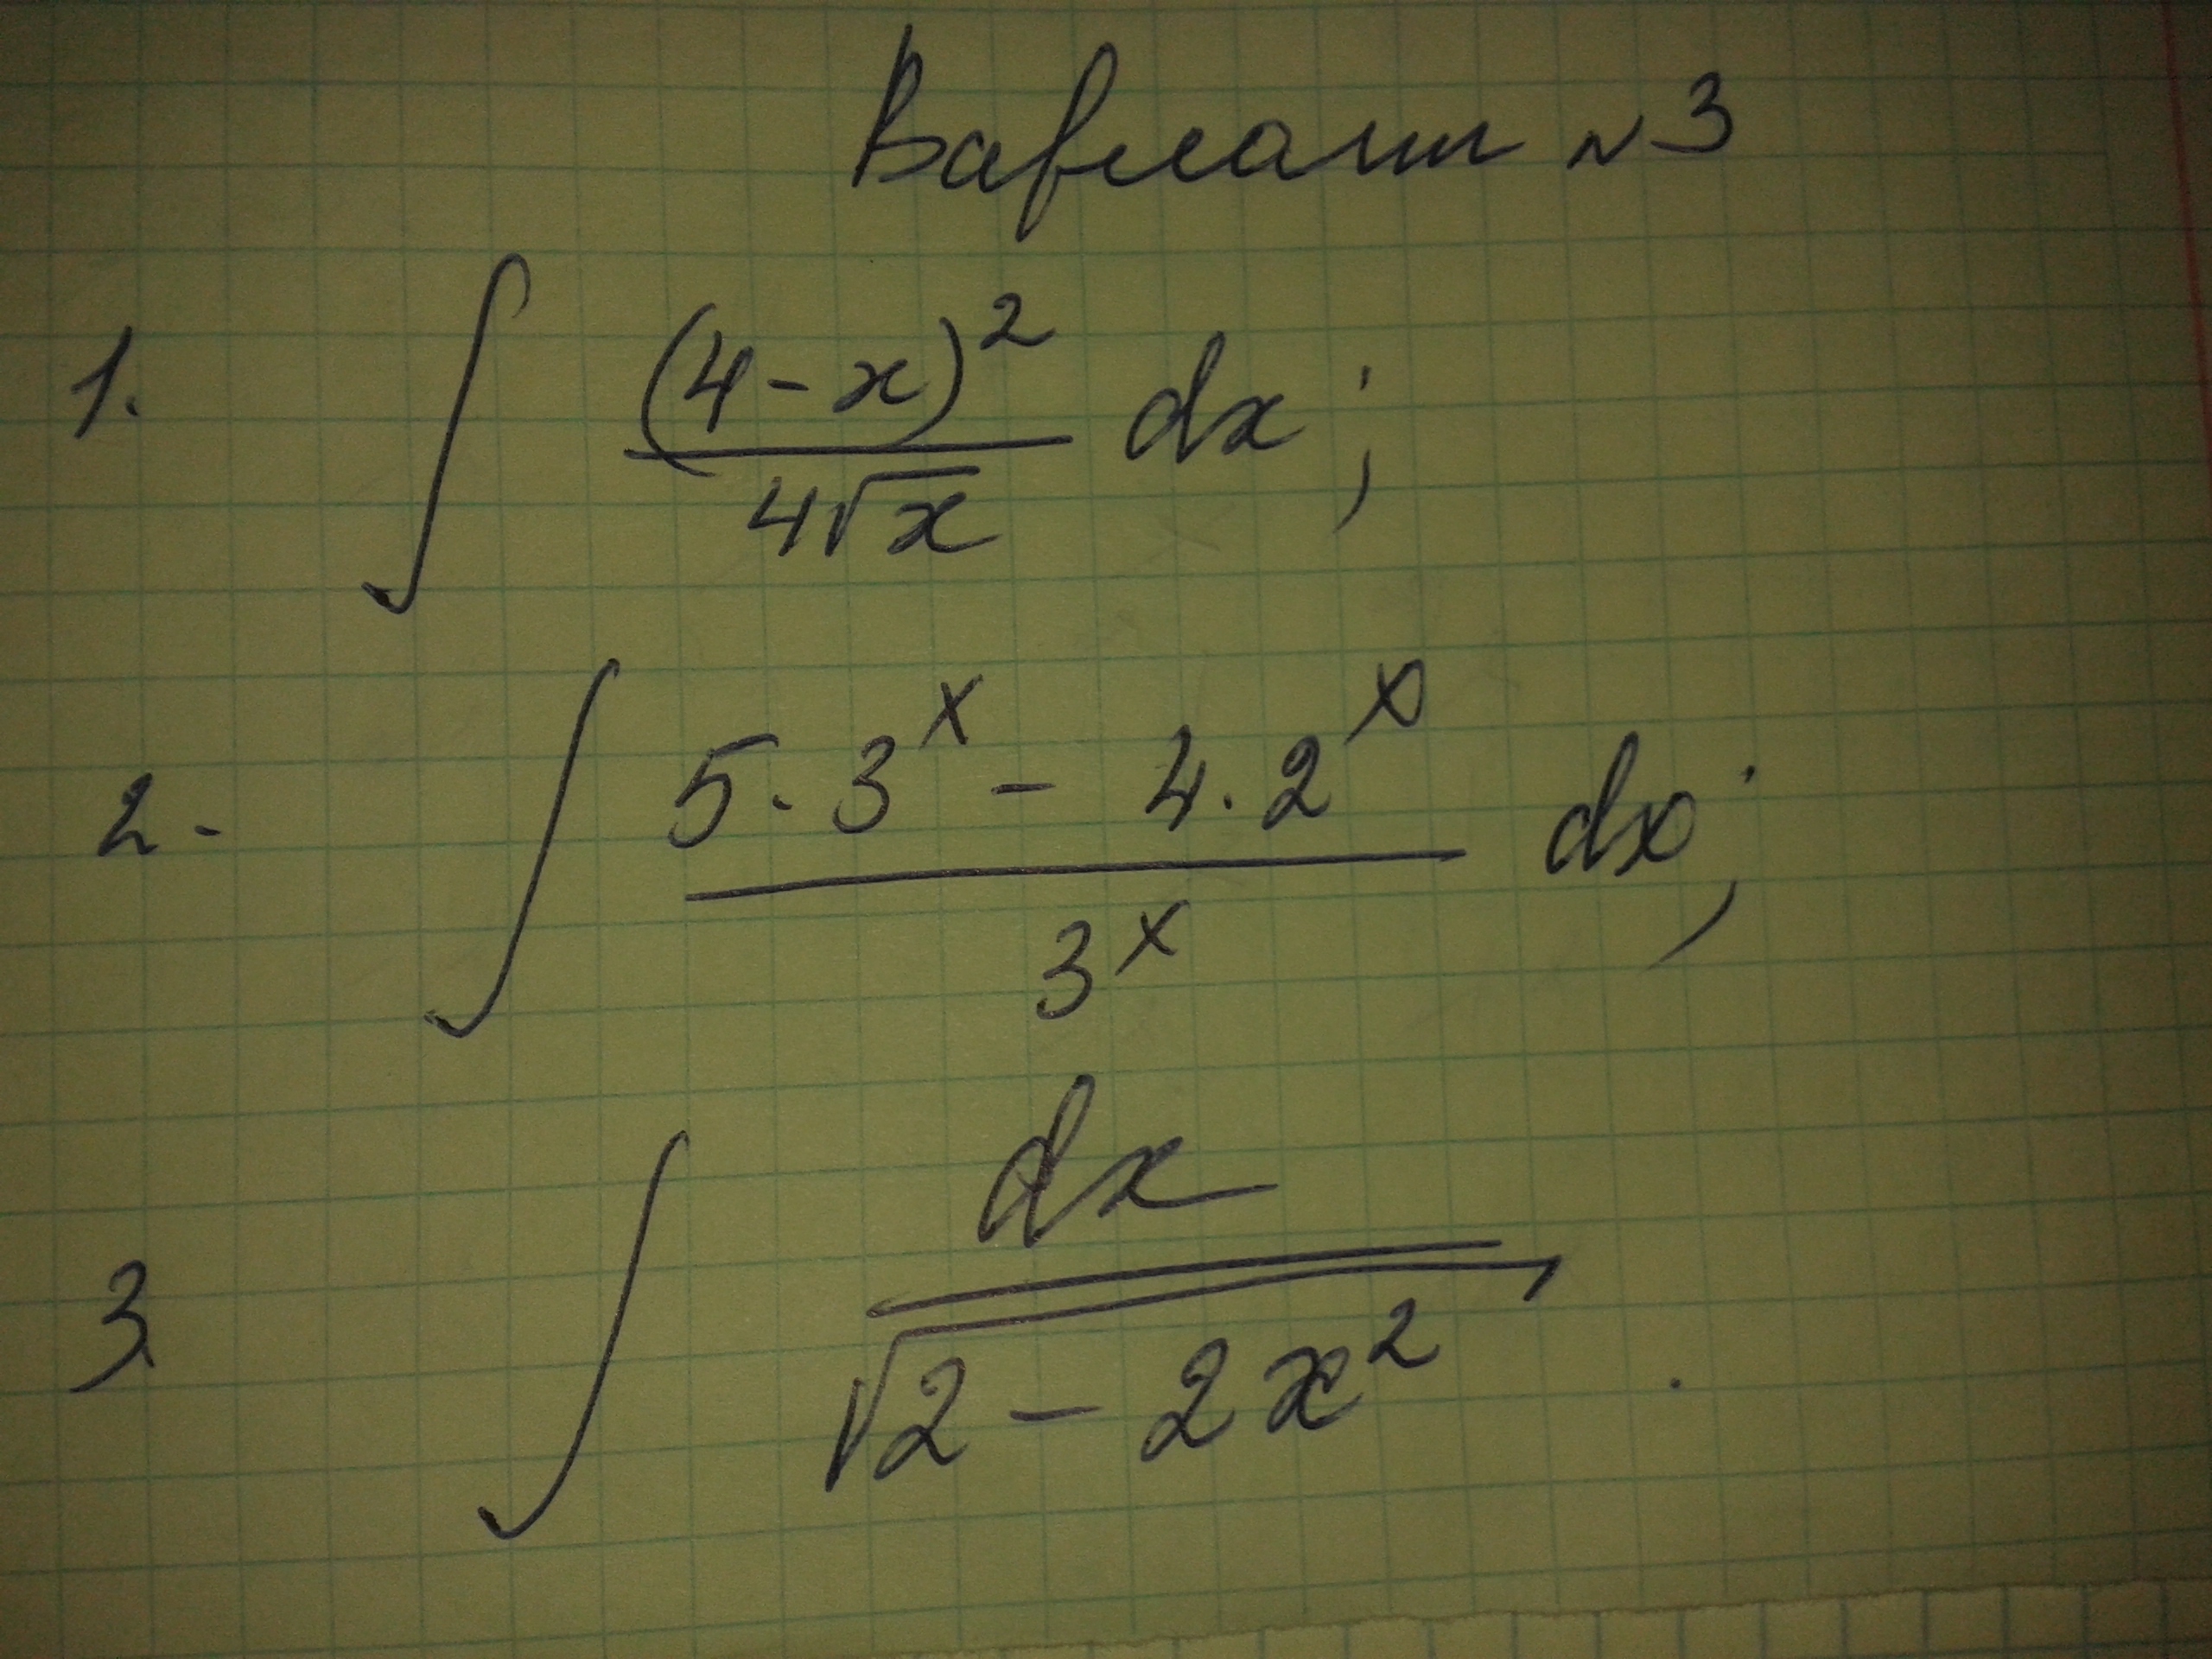 Вариант №3
1. ∫ (4-x)² / 4√x dx;
2. ∫ 5·3ˣ - 4·2ˣ / 3ˣ dx;
3. ∫ dx / √2-2x² .